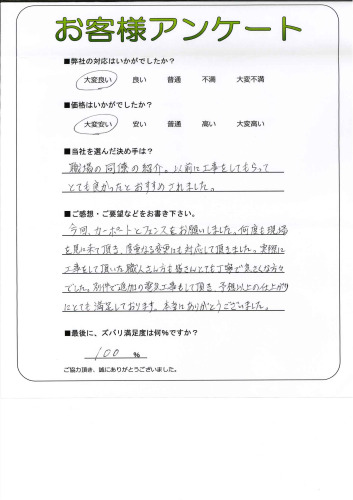 お客様アンケート
■弊社の対応はいかがでしたか?
大変良い 良い 普通 不満 大変不満
■価格はいかがでしたか?
大変安い 安い 普通 高い 大変高い
■当社を選んだ決め手は?
職場の同僚の紹介。以前に工事をしてもらって
とても良かったとおすすめされました。
■ご感想・ご要望などをお書き下さい。
今回、カーポートとフェンスをお願いしました。何度も現場
を見に来て頂き、度重なる変更にも対応して頂きました。実際に
工事をして頂いた職人さん方も皆さんとても丁寧で気さくな方々
でした。別件で追加の電気工事もして頂き、予想以上の仕上がり
にとても満足しております。本当にありがとうございました。
■最後に、ズバリ満足度は何%ですか?
100 %
ご協力頂き、誠にありがとうございました。